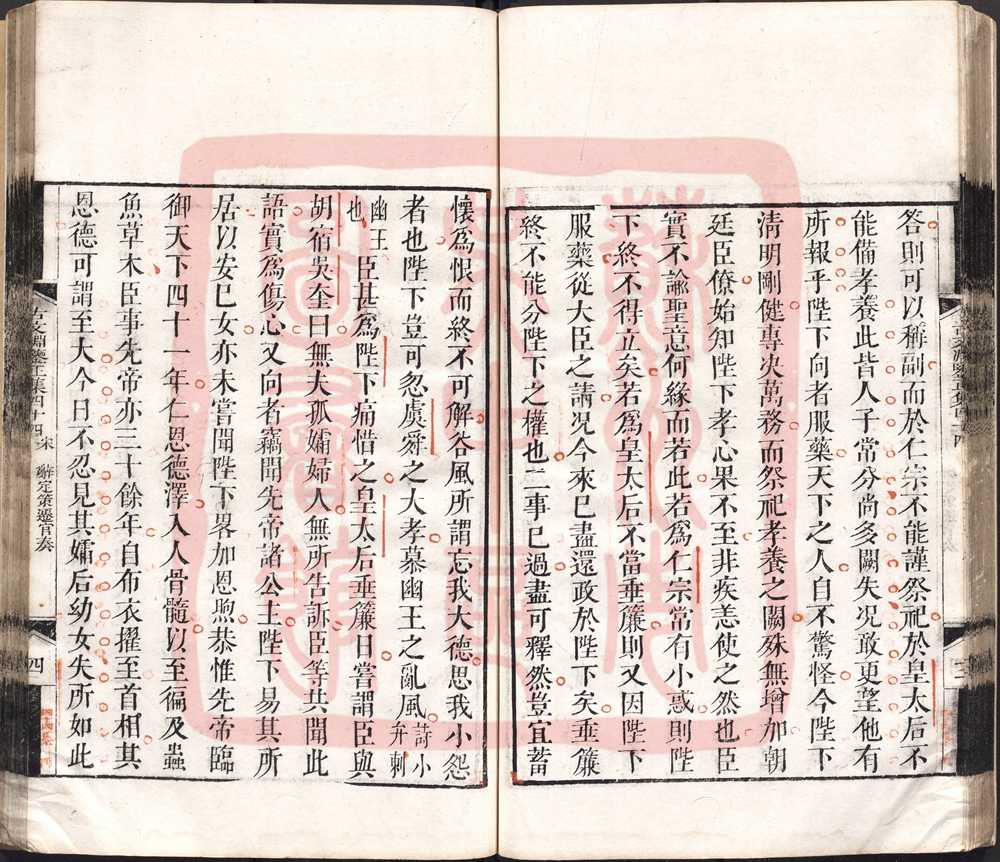 答則可以稱副而於仁宗不能謹祭祀於皇太后不
能備孝養此皆人子常分尚多闕失况敢更望他有
所報乎陛下向者服藥天下之人自不驚怪今陛下
清明剛健專决萬務而祭祀孝養之闕殊無增加朝
廷臣僚始知陛下孝心果不至非疾恙使之然也臣
實不諭聖意何緣而若此若爲仁宗常有小惑則陛
下終不得立矣若爲皇太后不當垂簾則又因陛下
服藥從大臣之請况今來已盡還政於陛下矣垂簾
終不能分陛下之權也二事已過盡可釋然豈宜蓄
懷爲恨而終不可解谷風所謂忘我大德思我小怨
者也陛下豈可忽虞舜之大孝慕幽王之亂風詩小弁刺
幽王也臣甚爲陛下痛惜之皇太后垂簾日嘗謂臣與
胡宿吳奎曰無夫孤孀婦人無所告訴臣等共聞此
語實爲傷心又向者竊聞先帝諸公主陛下易其所
居以安已女亦未嘗聞陛下畧加恩煦恭惟先帝臨
御天下四十一年仁恩德澤入人骨髓以至徧及蟲
魚草木臣事先帝亦三十餘年自布衣擢至首相其
恩德可謂至大今日不忍見其孀后幼女失所如此
古文淵鑒正集四十四 宋 辭定策遷官奏
四